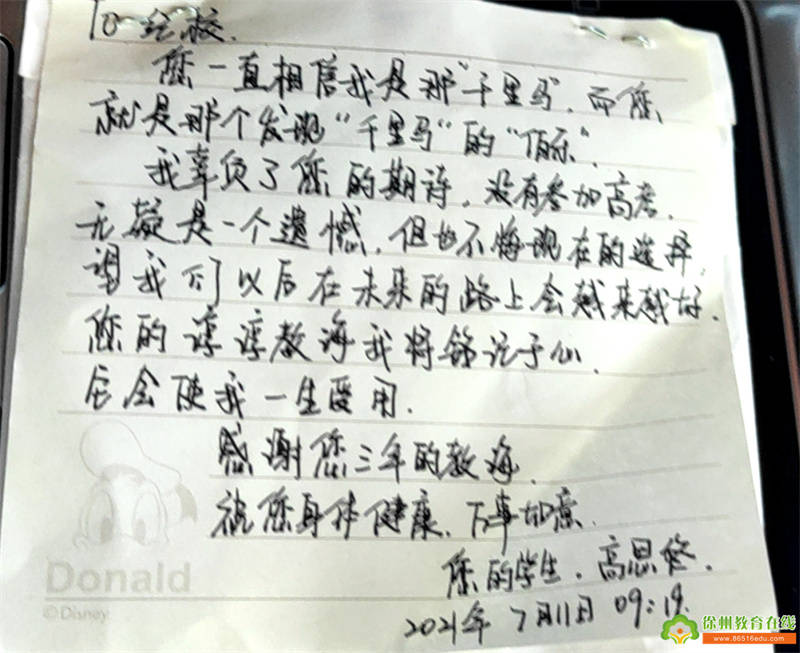 To 纪校.
您一直相信我是那"千里马",而您
就是那个发现"千里马"的"伯乐".
我辜负了您的期待,没有参加高考,
无疑是一个遗憾,但也不悔现在的选择,
望我们以后在未来的路上会越来越好.
您的谆谆教诲我将铭记于心.
它会使我一生受用.
感谢您三年的教诲.
祝您身体健康,万事如意.
您的学生.高思修.
2021年7月11日 09:19.
Donald
© Disney
徐州教育在线
www.86516edu.com